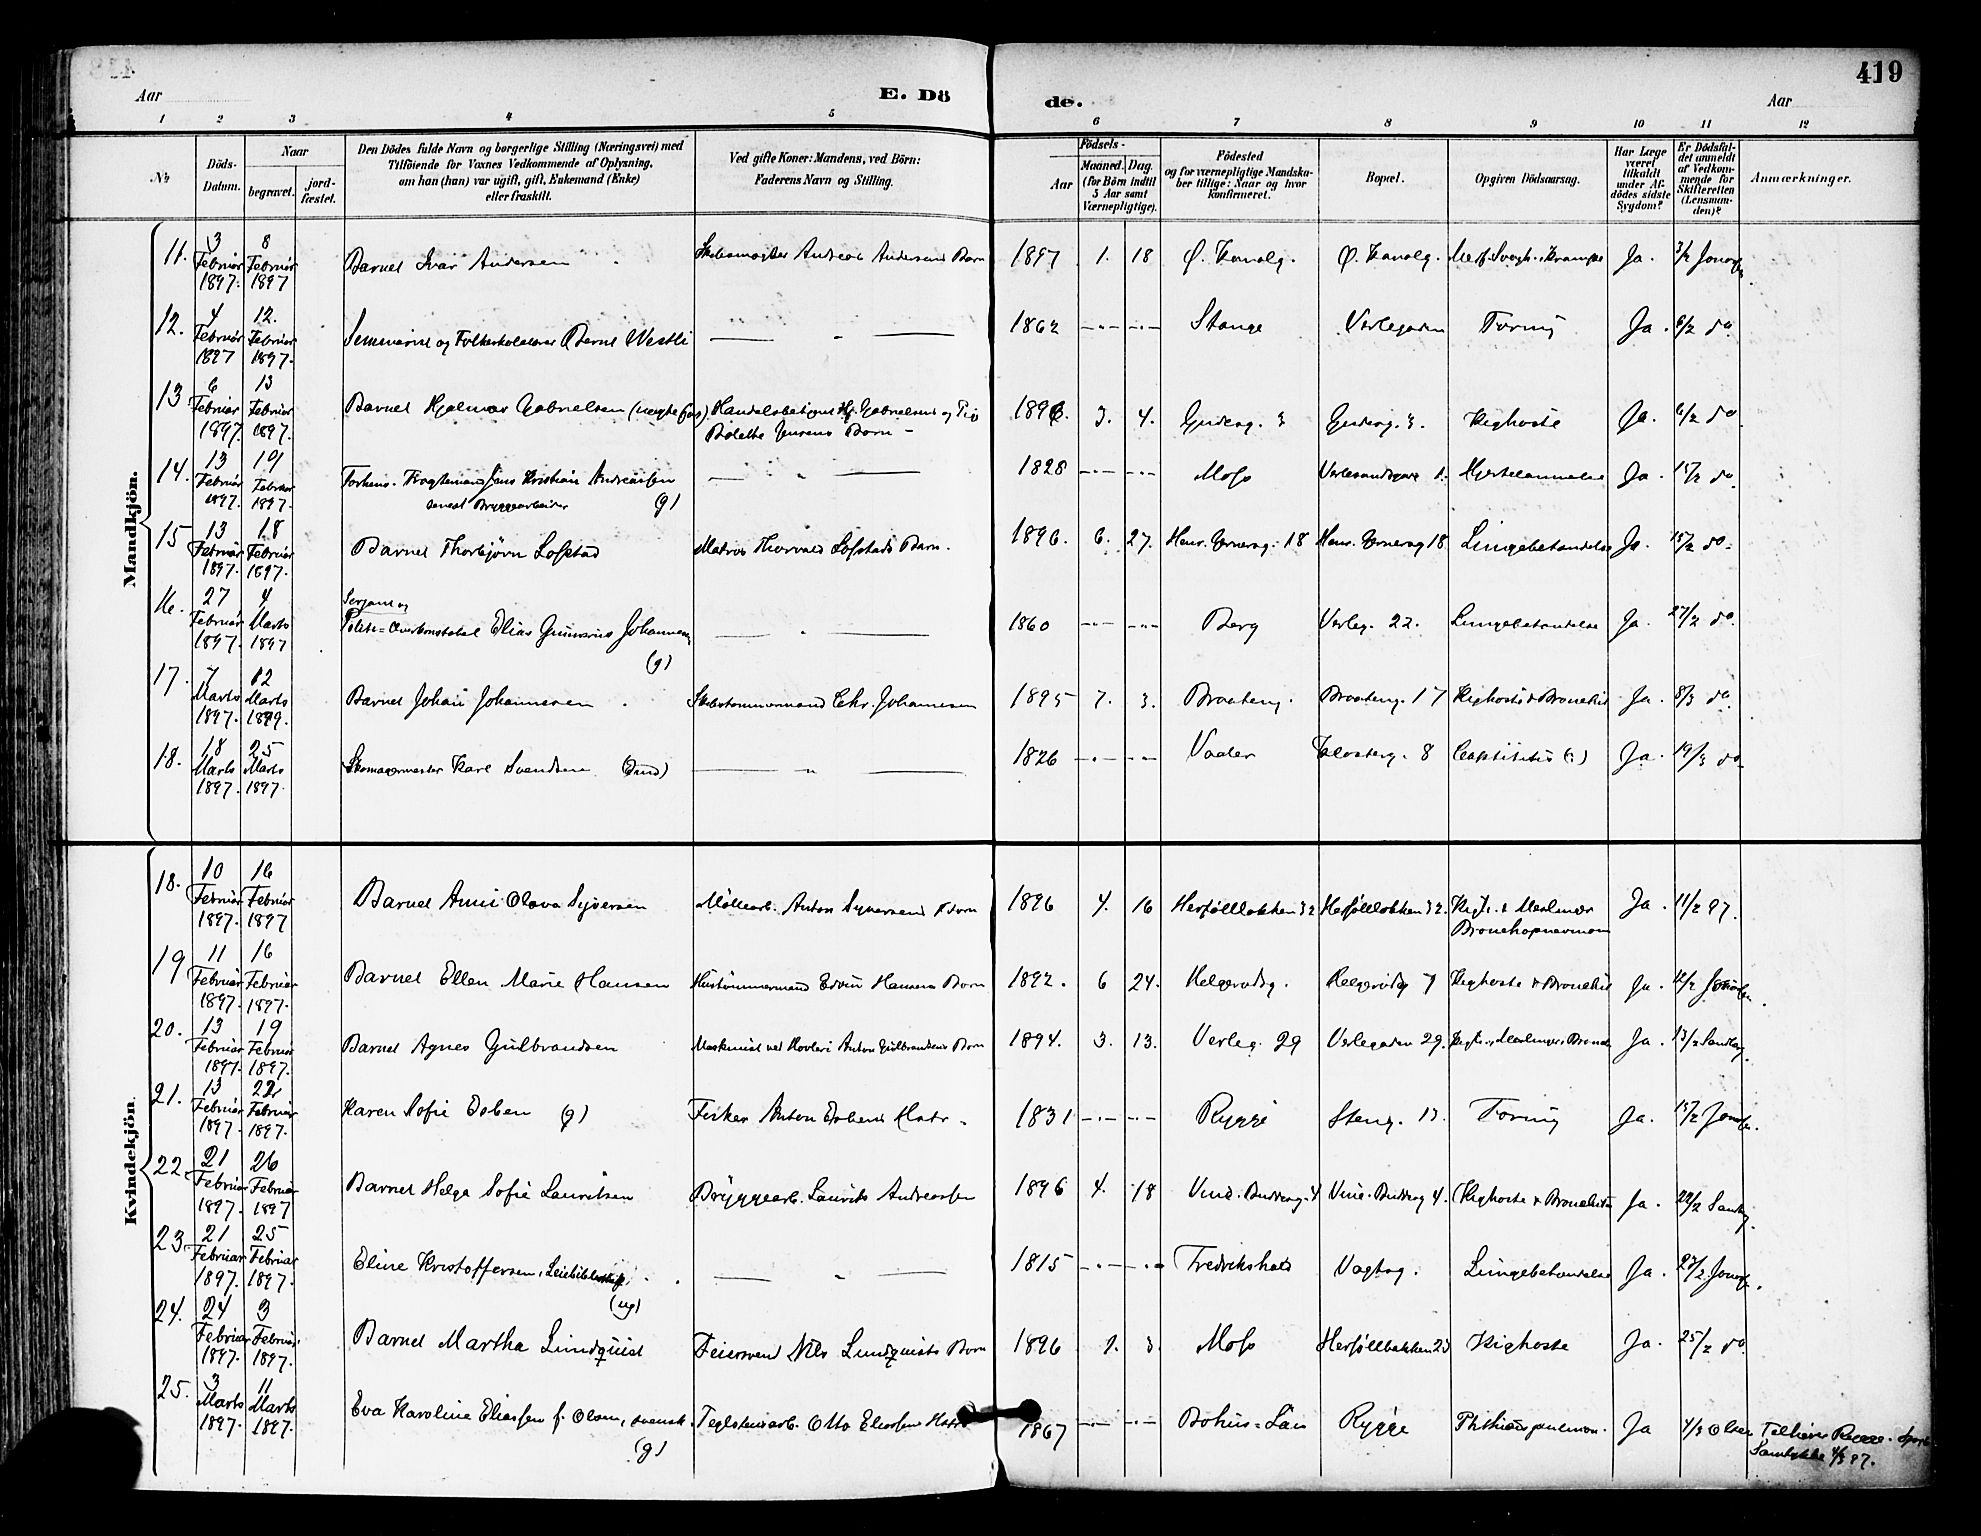 419
Aar
E. Dö
de.
Aar
1 2 3 4 5 6 7 8 9 10 11 12
No
Döds-Datum.
Naar
begravet.
jordfæstet.
Den Dödes fulde Navn og borgerlige Stilling (Næringsvei) med
Tilföiende for Voxnes Vedkommende af Oplysning,
om han (hun) var ugift, gift, Enkemand (Enke)
eller fraskilt.
Ved gifte Koner: Mandens, ved Börn:
Faderens Navn og Stilling.
Födsels-
Aar
Maaned. Dag.
(for Börn indtil
5 Aar samt
Værnepligtige).
Födested
og for værnepligtige Mandskaber tillige: Naar og hvor
konfirmeret.
Bopæl.
Opgiven Dödsaarsag.
Har Læge
været
tilkaldt
under Afdödes sidste
Sygdom?
Er Dödsfaldet anmeldt
af Vedkommende for
Skifteretten
(Lensmanden)?
Anmærkninger.
Mandkjön.
11. 3 Februar 1897. 8 Februar 1897 Barnet Ivar Andersen Andersens Barn 1897 1. 18 Ø. Kanalg. Ø. Kanalg. Krampe Ja. 3/2
12. 4 Februar 1897 12. Februar 1897. Seminarist og Bernt Westli — " — 1862 Stange Verlegaden Tæring Ja. 6/2 do
13 6 Februar 1897. 13 Februar 1897. Barnet Hjalmar Gabrielsen (uægtefød) Handelsbetjent Hj. Gabrielsens og Pige
Bolette Jensens Barn 1896. 3. 4. Gudesg. 3 Gudesg. 3. Kighoste Ja. 6/2 do
14. 13 Februar 1897. 19 Februar 1897. Jens Kristian Andreassen
senest Bryggearbeider (g) — " — 1828 Moss Hjertelammelse Ja. 15/2 do
15 13 Februar 1897. 18 Februar 1897. Barnet Thorbjørn Lofstad Matros Thorvald Lofstads Barn. 1896. 6. 27. Henr. Gernersg. 18 Henr. Gernersg 18 Lungebetændelse Ja. 15/2 do.
16. 27 Februar 1897. 4 Marts 1897 Serjant og
Politi-Overkonstabel Elias Gunerius Johannesen
(g) — " — 1860 Berg Verleg. 22. Lungebetændelse Ja. 27/2 do
17. 7 Marts 1897. 12 Marts 1899. Barnet Johan Johannesen Skibstømmermand Chr. Johannesen 1895 7. 3. Braateng. Braateng. 17 Kighoste & Bronchit Ja. 8/3 do
18. 18 Marts 1897. 25 Marts 1897. Skomagermester Karl Svendsen — " — 1826 Vaaler 8 Ja. 19/3 do
Kvindekjön.
18. 10 Februar 1897. 16 Februar 1897 Barnet Anni Olava Syversen Møllearb. Anton Syversens Barn 1896 4. 16 Herføllløkken 32 Herføllløkken 32. Kigh. & Meslinger
Bronchopneumoni Ja. 11/2 97.
19 11 Februar 1897. 16 Februar 1897. Barnet Ellen Marie Hansen Hustømmermand Edvin Hansens Barn 1892. 6 24. Helgerødg. Helgerødg 7 Kighoste & Bronchit Ja. 12/2
20. 13 Februar 1897. 19 Februar 1897. Barnet Agnes Gulbrandsen Maskinist ved Høvleri Anton Gulbrandsens Barn 1894. 3. 13. Verleg. 29 Verlegaden 29. Ja. 13/2 Sandberg.
21. 13 Februar 1897. 22 Februar 1897. Karen Sofie Esben (g) Fisker Anton Esbens Hstr. 1831 Rygge Steng. 13. Tæring Ja. 15/2
22. 21 Februar 1897. 26 Februar 1897 Barnet Helga Sofie Lauritsen Bryggearb. Laurits Andreassen 1896 4. 18 4 4. Kighoste & Bronchitis Ja. 22/2
23 21 Februar 1897. 25 Februar 1897. Eline Kristoffersen,
(ug) — " — 1815 Fredrikshald Vogtsg. Lungebetændelse Ja. 23/2
24. 24 Februar 1897. 3 Februar 1897. Barnet Martha Lundquist Feiersvend Nils Lundquists Barn 1896 Moss Herføllbakken 23 Kighoste Ja. 25/2 do
25. 3 Marts 1897. 11 Marts 1897. Eva Karoline Eliassen f. Olsen, svensk.
(g) Teglstensarb. Otto Eliassens Hstr. 1867 Bohus-Län Rygge Phthisis pulmon. Ja 4/3 Olsen Tilhører Rygge.
4/3 97.